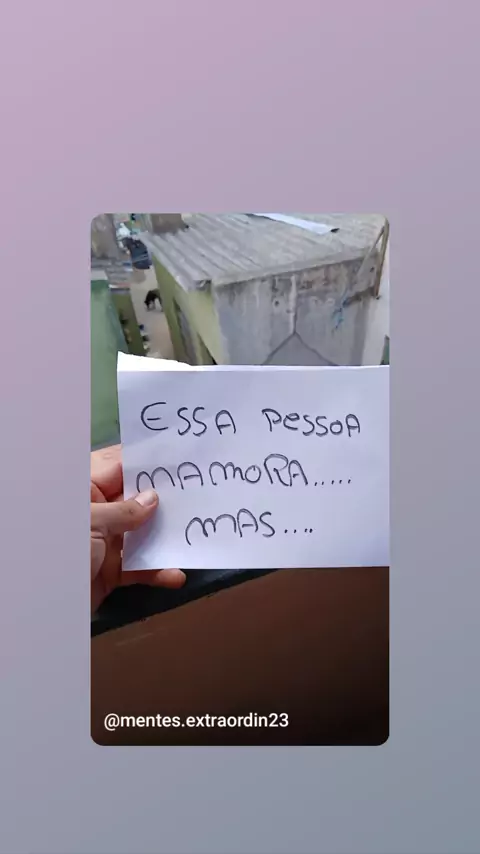 ESSA PESSOA
MAMORA.....
MAS....
@mentes.extraordin23